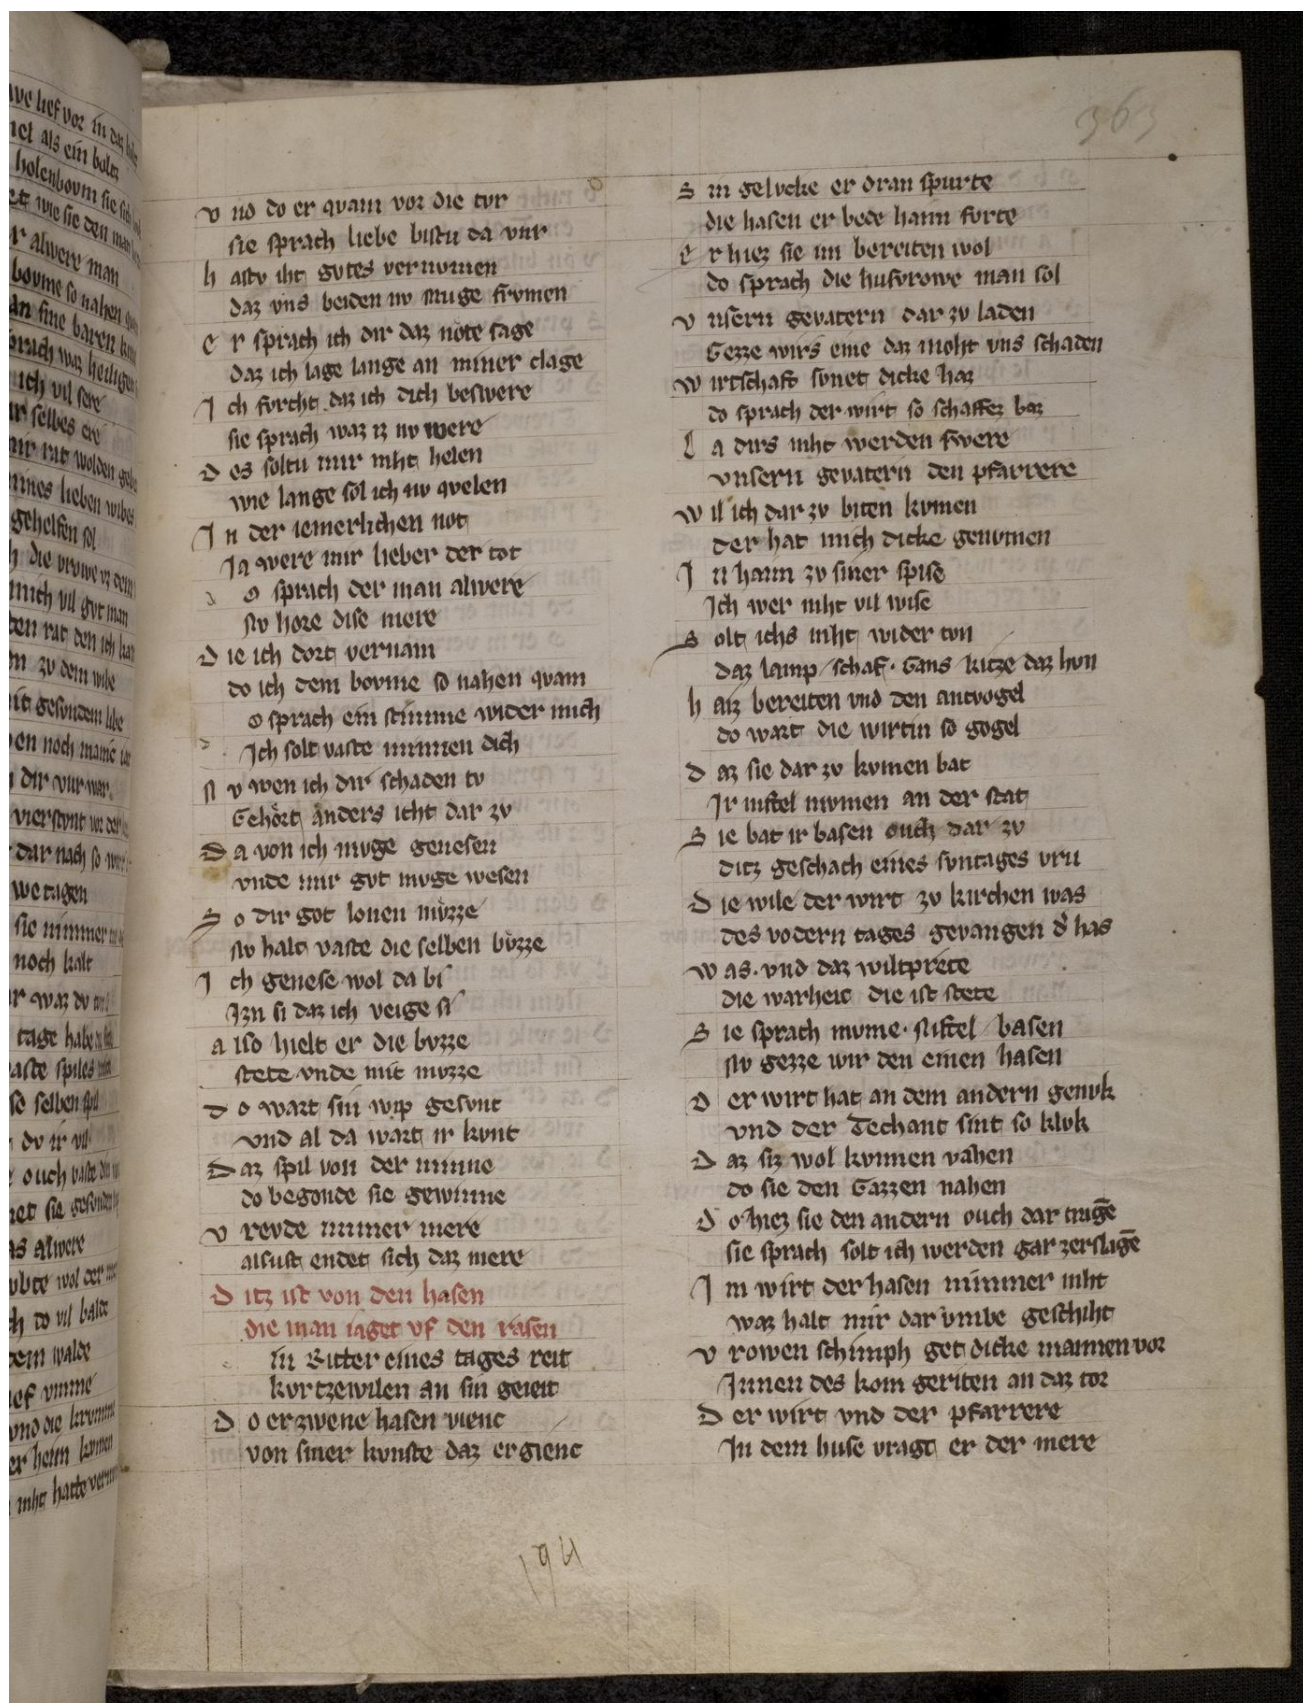 363
v nd do er qvam vor die tvr
sie sprach liebe bistu da vur
h astv iht gvtes vernomen
daz vns beiden nv mvge frvmen
e r sprach ich dir daz note sage
daz ich lage lange an miner clage
J ch forcht daz ich dich beswere
sie sprach waz iz nv were
D es soltu mir niht helen
wie lange sol ich nv qvelen
J n der iemerlichen not
Ja were mir lieber der tot
o sprach der man alwere
Nv hore dise mere
D ie ich dort vernam
do ich dem bovme so nahen qvam
o sprach ein stimme wider mich
Ich solt vaste minnen dich
N v wen ich dir schaden tv
Gehört anders icht dar zv
D a von ich mvge genesen
vnde mir gvt mvge wesen
S o dir got lonen mvzze
Nv halt vaste die selben bvzze
J ch genese wol da bi
Jzn si daz ich veige si
a lso hielt er die bvzze
stete vnde mit mvzze
d o wart sin wip gesvnt
vnd al da wart ir kvnt
D az spil von der minne
do begonde sie gewinne
v revde nimer mere
alsust endet sich daz mere
D itz ist von den hasen
die man iaget vf den rasen
in Ritter eines tages reit
kvrtzewilen an sin geieit
D o er zwene hasen vienc
von siner kvnste daz ergienc
S in gelvcke er dran spurte
die hasen er bede haim furte
e r hiez sie im bereiten wol
do sprach die husvrowe man sol
v nsern gevatern dar zv laden
Gezze wirs eine daz moht vns schaden
w irtschaft svnet dicke haz
do sprach der wirt so schaffez baz
l a dirs niht werden swere
vnsern gevatern den pfarrere
w il ich dar zv biten kvmen
der hat mich dicke genvmen
J n haim zv siner spise
Ich wer niht vil wise
S olt ichs niht wider tvn
daz lamp / schaf · Gans / kitze daz hvn
h aiz bereiten vnd den antvogel
do wart die wirtin so gogel
d az sie dar zv kvmen bat
Ir niftel mvmen an der stat
S ie bat ir basen ouch dar zv
ditz geschach eines svntages vru
D ie wile der wirt zv kirchen was
des vodern tages gevangen d̾ has
w as · vnd daz wiltprete
die warheit die ist stete
S ie sprach mvme · niftel / basen
Nv gezze wir den einen hasen
D er wirt hat an dem andern genvk
vnd der Techant sint so klvk
D az siz wol kvnnen vahen
do sie den Gazzen nahen
d o hiez sie den andern ouch dar tragē
sie sprach solt ich werden gar zerslagē
J m wirt der hasen nimmer niht
waz halt mir dar vmbe geschiht
v rowen schimph get dicke mannen vor
Innen des kom geriten an daz tor
D er wirt vnd der pfarrere
In dem huse vragt er der mere
194